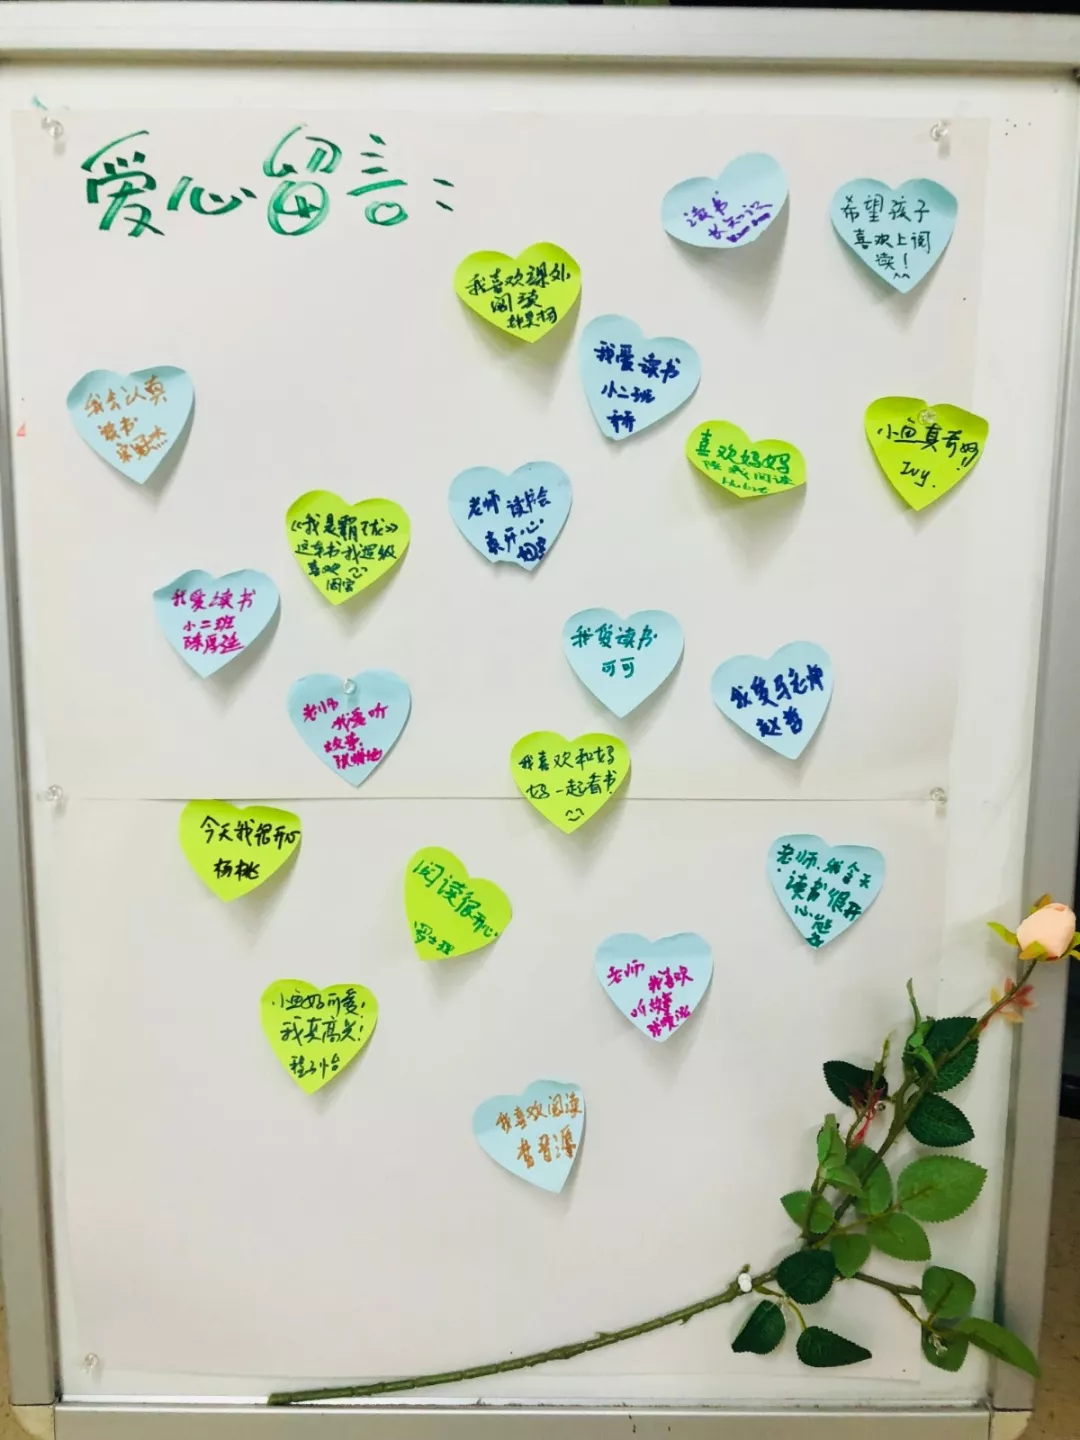 爱心留言：
读书
长知识
希望孩子
喜欢上阅
读！
我喜欢课外
阅读
我爱读书
小二班
我会认真
读书
小鱼真奇妙!!
Ivy.
喜欢妈妈
陪我阅读
老师读书会
真开心
《我是霸王龙》
这本书我超级
喜欢
我爱读书
小二班
我爱读书
可可
我爱马老师
赵哲
老师
我爱听
故事.
我喜欢和妈
妈一起看书
今天我很开心
杨桃
阅读很开心.
老师.我今天
读书很开
心
老师
我喜欢
听故事
小鱼好可爱!
我真高兴!
程子怡
我喜欢阅读